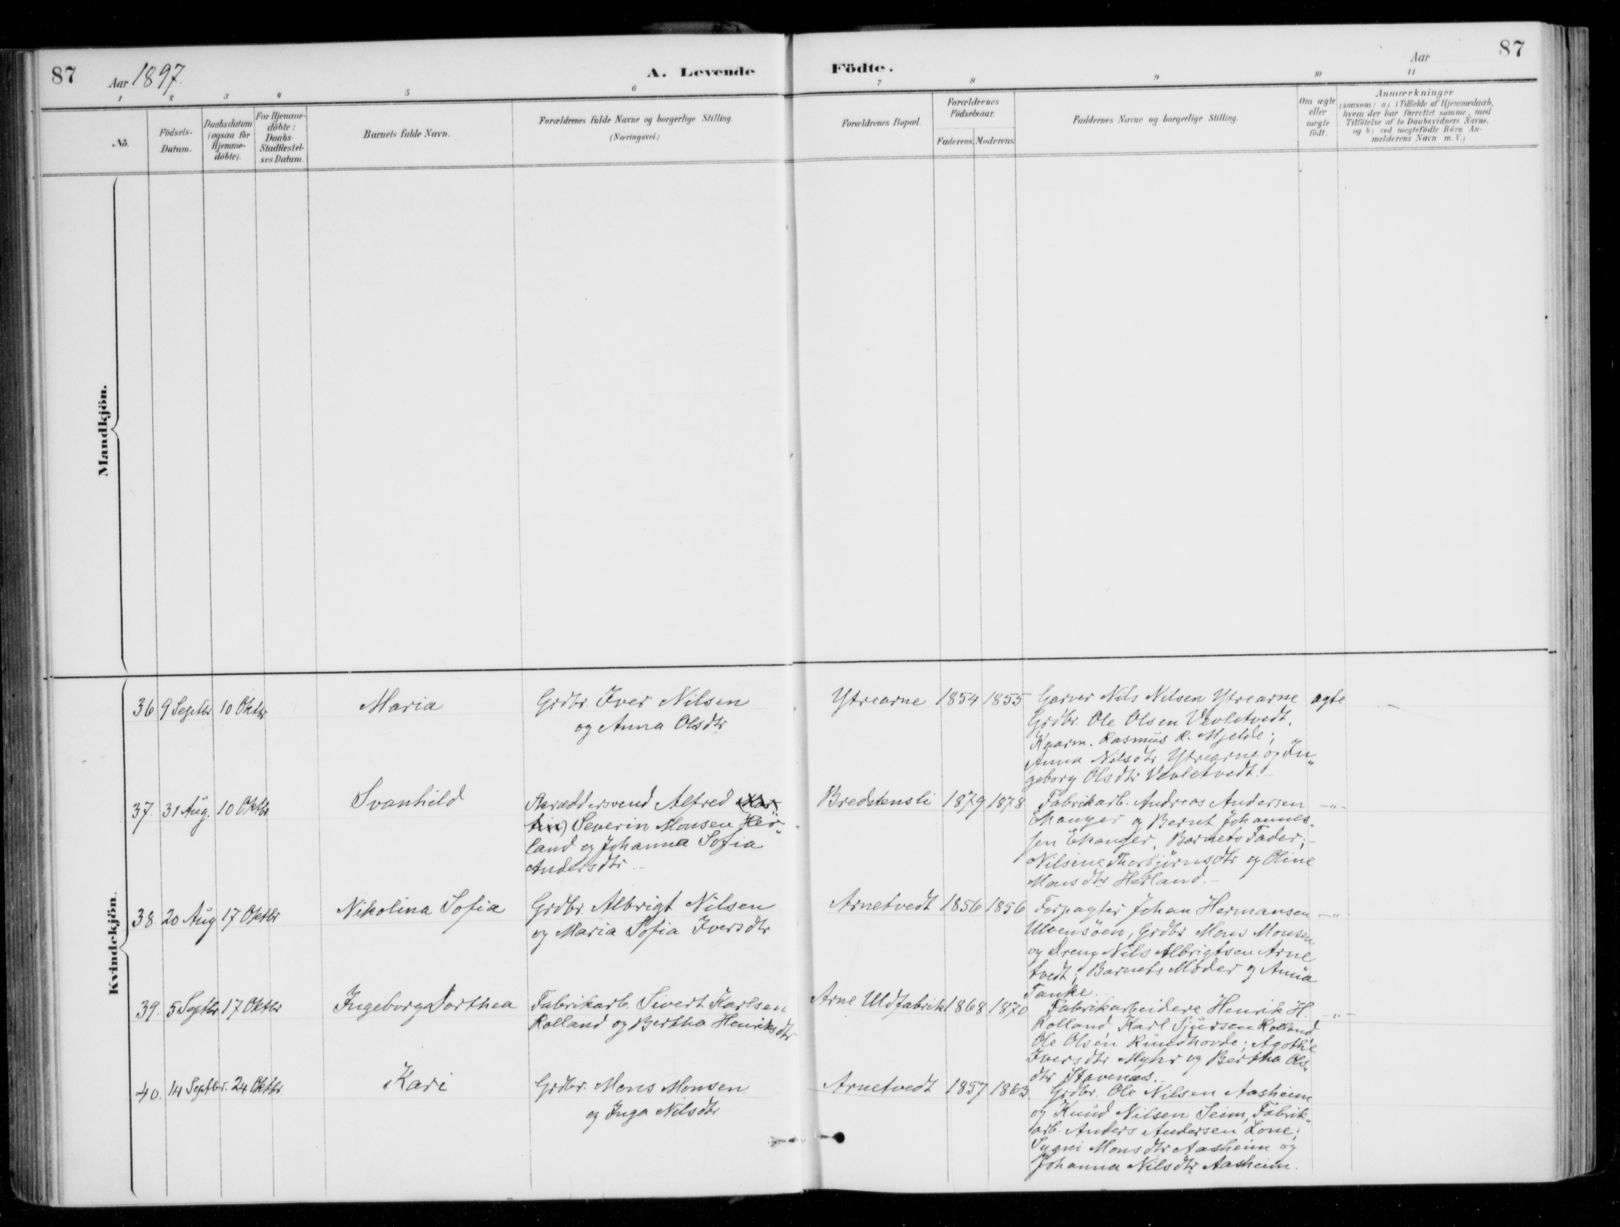 87
Aar 1897.
A. Levende Födte.
Aar
87
1 2 3 4 5 6 7 8 9 10 11
No.
Födsels-Datum.
Daabsdatum (ogsaa for Hjemme-döbte).
For Hjemme-döbte: Daabs-Stadfæstel-ses Datum.
Barnets fulde Navn.
Forældrenes fulde Navne og borgerlige Stilling. (Næringsvei.)
Forældrenes Bopæl.
Forældrenes Födselsaar.
Faderens.
Moderens.
Faddernes Navne og borgerlige Stilling.
Om ægte eller uægte födt.
Anmærkninger
(saasom: a) i Tilfælde af Hjemmedaab,
hvem der har forrettet samme, med
Tilföielse af to Daabsvidners Navne,
og b) ved uægtefödte Börn An-
melderens Navn m. V.)
Mandkjön.
Kvindekjön.
36. 9 Septbr 10 Oktbr Maria
Grdbr. Iver Nilsen
og Anna Olsdtr
Ytrearne 1854 1855
Garver Nils Nilsen Ytrearne
Grdbr. Ole Olsen
Kaarm. Rasmus R. Mjelde;
Anna Nilsdtr Ytrearne og In-
geborg Olsdtr
ægte
37. 31 Aug. 10 Oktbr Svanhild
Alfred
Severin Monsen Her-
land og Johanna Sofia
Andersdtr.
Bredstensli 1879 1878
Fabrikarb. Andreas Andersen
Ekanger og Bernt Johannes-
sen Ekanger, Barnets Fader;
Nilsine Thorbjørnsdtr og Oline
Monsdtr Herland.
-"-
38. 20 Aug 17 Oktbr Nikolina Sofia
Grdbr. Albrigt Nilsen
og Maria Sofia Iversdtr
Arnetvedt 1856 1856
Forpagter Johan Hermansen
Ulvensöen, Grdbr. Mons Monsen
og Dreng Nils Albrigtsen Arne
tvedt; Barnets Moder og Anna
Tanke.
-"-
39. 5 Septbr 17 Oktbr Ingeborg Dorthea
Fabrikarb. Sivert Karlsen
Rolland og Bertha Henriksdtr
Arne Uldfabrik 1868 1870
Fabrikarbeidere Henrik H.
Rolland, Karl Sjursen Rolland
Ole Olsen Rundhovde; Agothe
Iversdtr Myhr og Bertha Ols-
dtr Stavenæs.
-"-
40. 14 Septbr. 24 Oktbr. Kari
Grdbr. Mons Monsen
og Inga Nilsdtr
Arnetvedt 1857 1863.
Grdbr. Ole Nilsen Aasheim
og Knud Nilsen Seim, Fabrik-
arb. Anders Andersen Lone;
Sygni Monsdtr Aasheim og
Johanna Nilsdtr Aasheim.